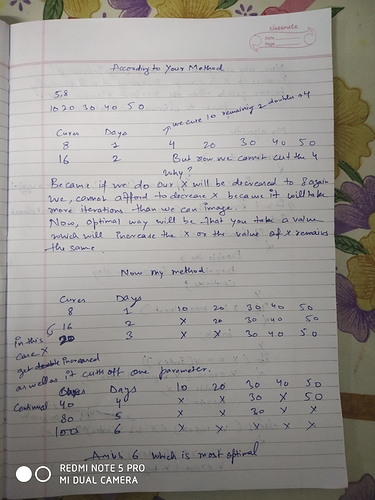 classmate
Date
Page
According to Your Method
5, 8
10 20 30 40 50
we cure 10 remaining 2 doubles → 4
Cures Days
8 1 4 20 30 40 50
16 2 But now we cannot cut the 4
Why?
Because if we do our X will be decreased to 8 again
we, cannot afford to decrease X because it will take
more iterations than we can image.
Now, optimal way will be that you take a value
which will increase the X or the value of X remains
the same
Now my method
Cures Days
8 1 10 20 30 40 50
16 2 X 20 30 40 50
20 3 X X 30 40 50
In this
case X
get double increased
as well as it cuts off one parameter.
Continued
Cures Days 10 20 30 40 50
40 4 X X 30 X 50
80 5 X X 30 X X
100 6 X X X X X
Ans is 6 which is most optimal
REDMI NOTE 5 PRO
MI DUAL CAMERA